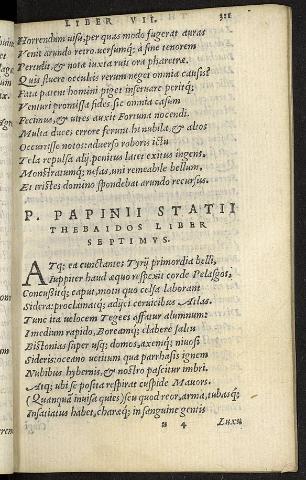 LIBER VII. 311
Horrendum uisu, per quas modo fugerat auras
Venit arundo retro. uersumq; à fine tenorem
Pertulit, & nota iuxta ruit ora pharetræ.
Quis fluere occultis rerum neget omnia causis?
Fata patent homini piget inseruare peritq;
Venturi promissa fides. sic omnia casum
Fecimus, & uires auxit Fortuna nocendi.
Multa duces errore ferunt. hi nubila, & altos
Occurrisse notos: aduerso roboris ictu
Tela repulsa alij. penitus latet exitus ingens,
Monstratumq; nefas, uni remeabile bellum,
Et tristes domino spondebat arundo recursus.
P. PAPINII STATII
THEBAIDOS LIBER
SEPTIMVS.
ATq; ea cunctantes Tyrij primordia belli,
Iuppiter haud æquo respexit corde Pelasgos,
Concußitq; caput, motu quo celsa laborant
Sidera: proclamatq; adijci ceruicibus Atlas.
Tunc ita uelocem Tegees affatur alumnum:
I medium rapido, Boreamq; elabere saltu
Bistonias super usq; domos, axemq; niuosi
Sideris: oceano uetitum qua parrhasis ignem
Nubibus hybernis, & nostro pascitur imbri.
Atq; ubi se posita respirat cuspide Mauors.
(Quanquã inuisa quies) seu quod reor, arma, tubasq;
Insatiatus habet, charaq; in sanguine gentis
u 4 Luxu